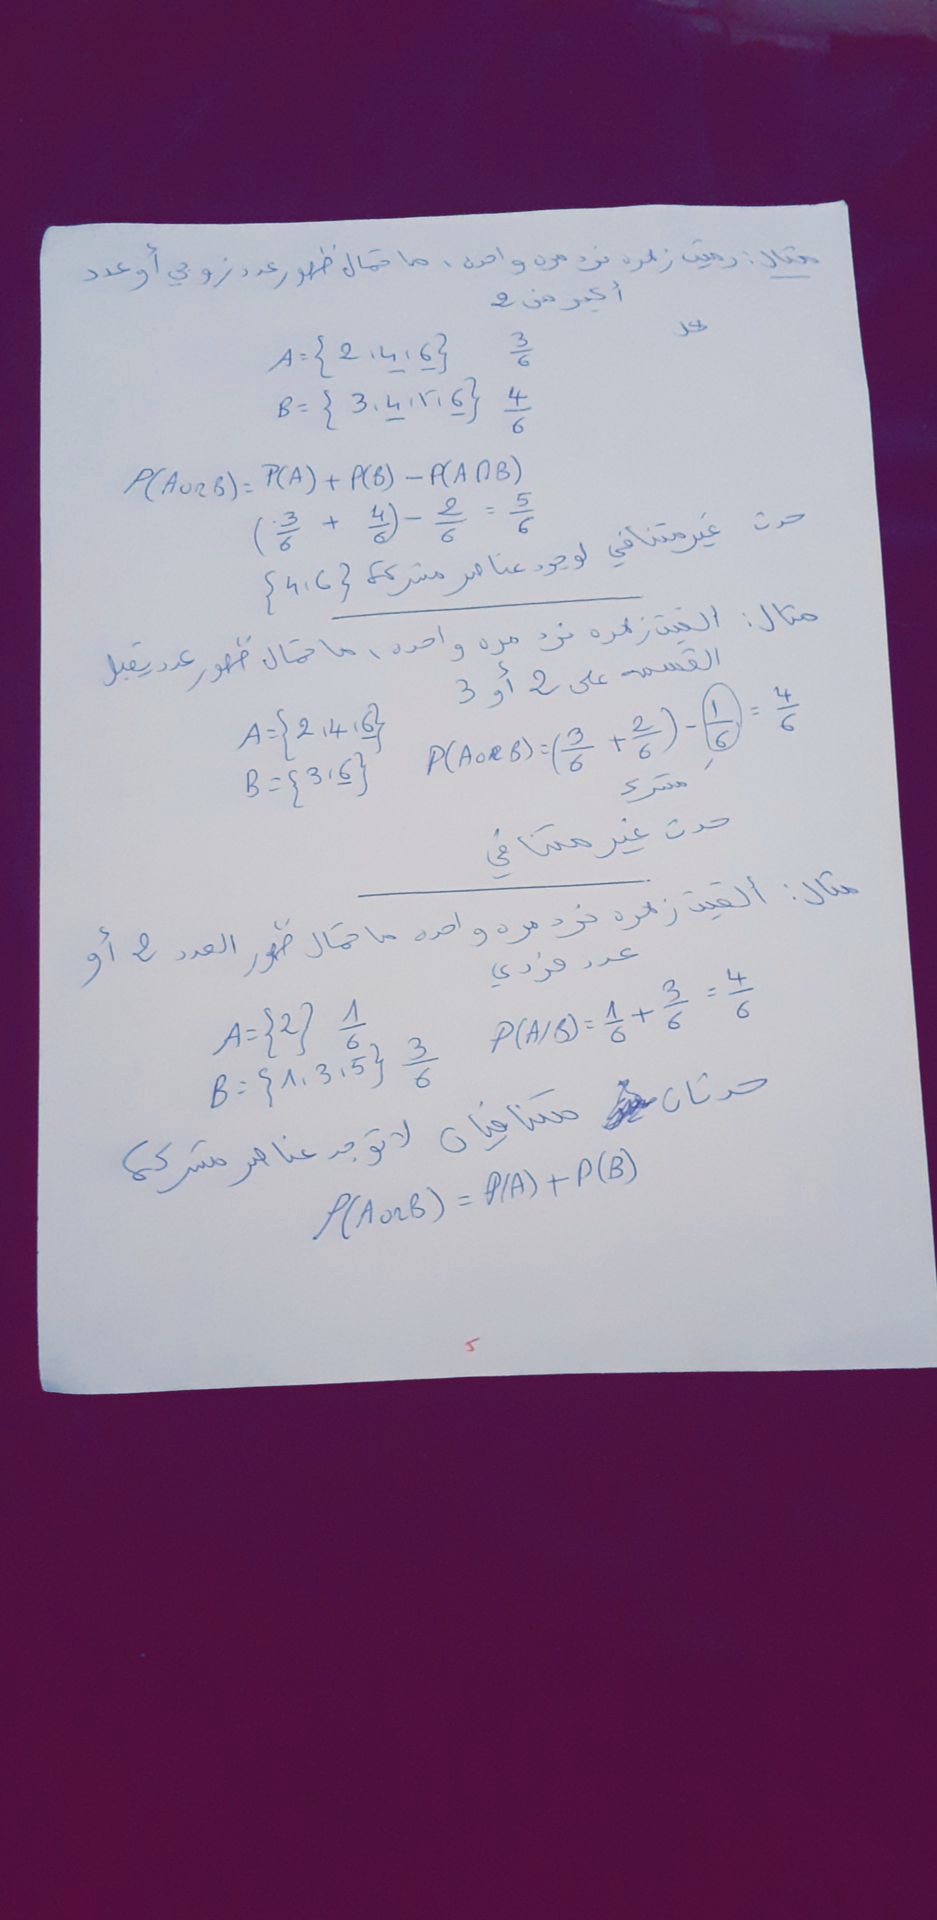 مثال: رميت زهره نرد مره واحده، ما احتمال ظهور عدد زوجي أو عدد
أكبر من 2
A={2,4,6} 3/6
B={3,4,5,6} 4/6
P(A or B)= P(A) + P(B) - P(A∩B)
(3/6 + 4/6) - 2/6 = 5/6
حدث غير متنافي لوجود عناصر مشتركة {4,6}
مثال: القيت زهره نرد مره واحده، ما احتمال ظهور عدد يقبل
القسمه على 2 أو 3
A={2,4,6}
B={3,6} P(A or B)=(3/6 + 2/6) - 1/6 = 4/6
مشترك
حدث غير متنافي
مثال: ألقيت زهره نرد مره واحده ما احتمال ظهور العدد 2 أو
عدد فردي
A={2} 1/6
B={1,3,5} 3/6 P(A/B)= 1/6 + 3/6 = 4/6
حدثان متنافيان لا توجد عناصر مشتركة
P(A or B) = P(A) + P(B)
5